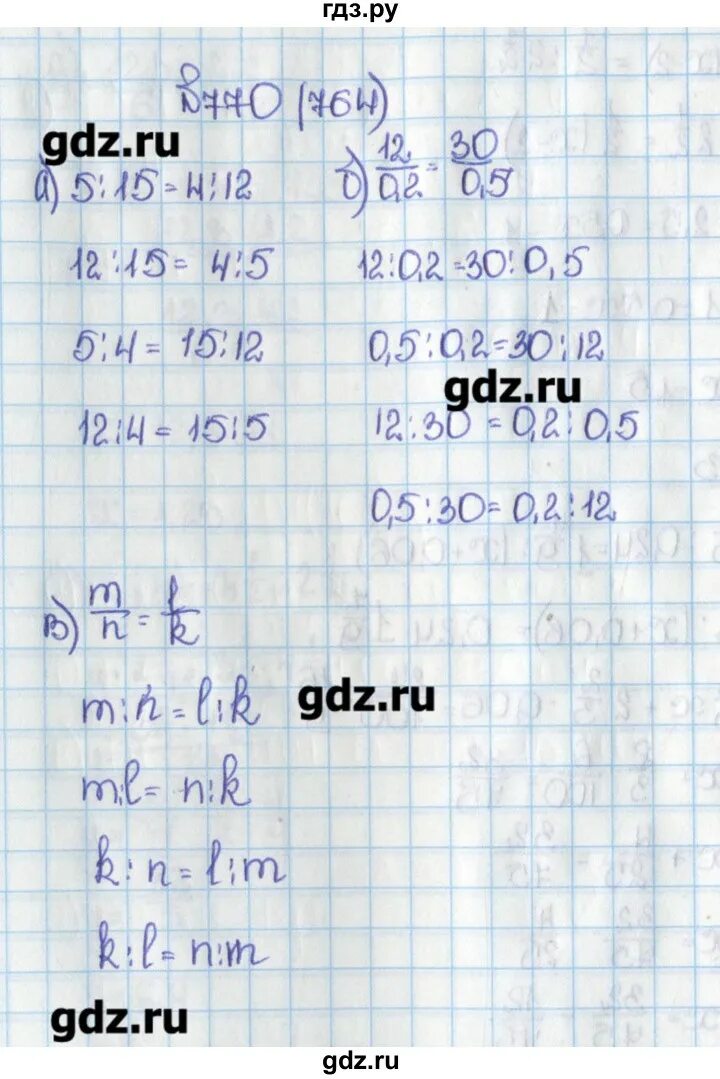 гдз.ру
№770 (764)
gdz.ru
а) 5:15=4:12
12:15=4:5
5:4=15:12
12:4=15:5
б) 12/0,2=30/0,5
12:0,2=30:0,5
0,5:0,2=30:12
gdz.ru
12:30=0,2:0,5
0,5:30=0,2:12
в) m/n=l/k
m:n=l:k
gdz.ru
m:l=n:k
k:n=l:m
k:l=n:m
gdz.ru
gdz.ru